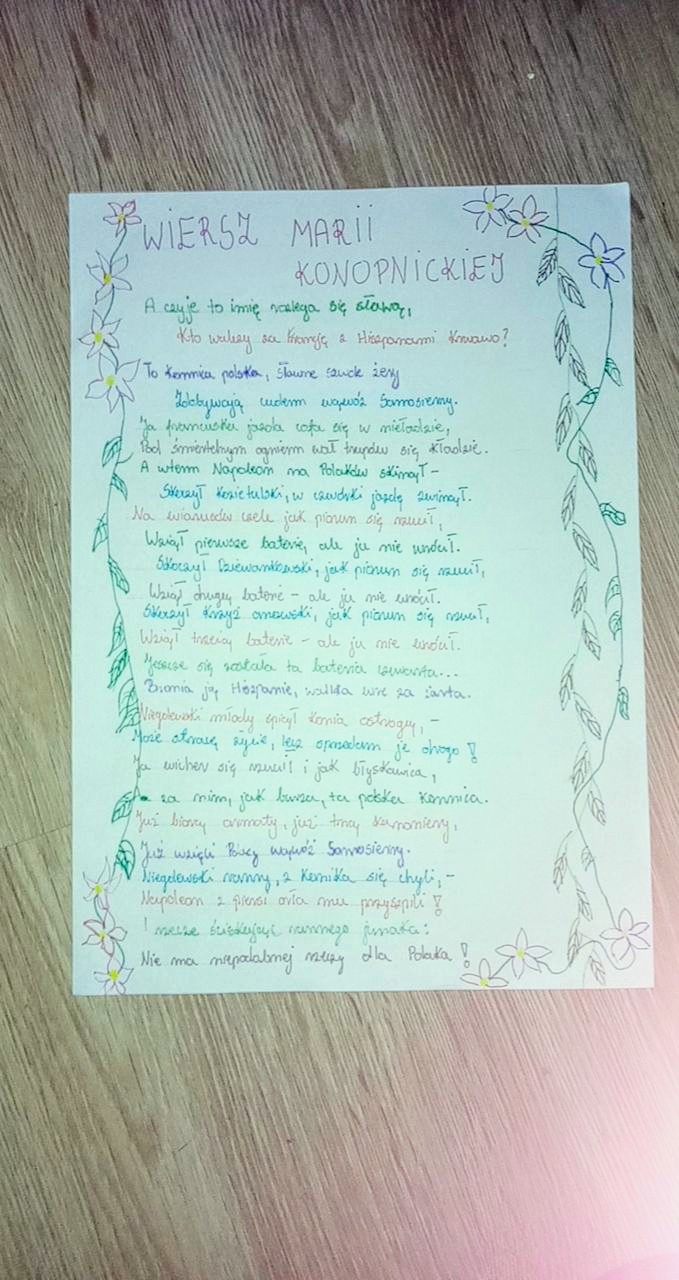 WIERSZ MARII
KONOPNICKIEJ
A czyje to imię rozlega się sławą,
Kto walczy za Francję z Hiszpanami krwawo?
To konnica polska, sławne szwoleżery
Zdobywają cudem wąwóz Samosierry.
Ja francuska jazda cofa się w nieładzie,
Pod śmiertelnym ogniem wał trupów się kładzie.
A wtem Napoleon na Polaków skinął -
Skoczył Kozietulski, w czwórki jazdę zwinął.
Na wiarusów czele jak piorun się rzucił,
Wziął pierwsze baterie, ale ju nie wrócił.
Skoczył Dziewanowski, jak piorun się rzucił,
Wziął drugą baterie - ale ju nie wrócił.
Skoczył Krzyż anowski, jak piorun się rzucił,
Wziął trzecią baterie - ale ju nie wrócił.
Jeszcze się została ta bateria czwarta...
Bronią ją Hiszpanie, walka wre za arta.
Niegolewski młody spiął konia ostrogą, -
Może stracę życie, lecz sprzedam je drogo!
Ja wicher się rzucił i jak błyskawica,
A za nim, jak burza, ta polska konnica.
Już biorą armaty, już tną kanoniery,
Już wzięli Polacy wąwóz Samosierry.
Niegolewski ranny, z konika się chyli, -
Napoleon z piersi orła mu przyszpili!
I rzecze ściskając rannego junaka:
Nie ma niepodobnej rzeczy dla Polaka!